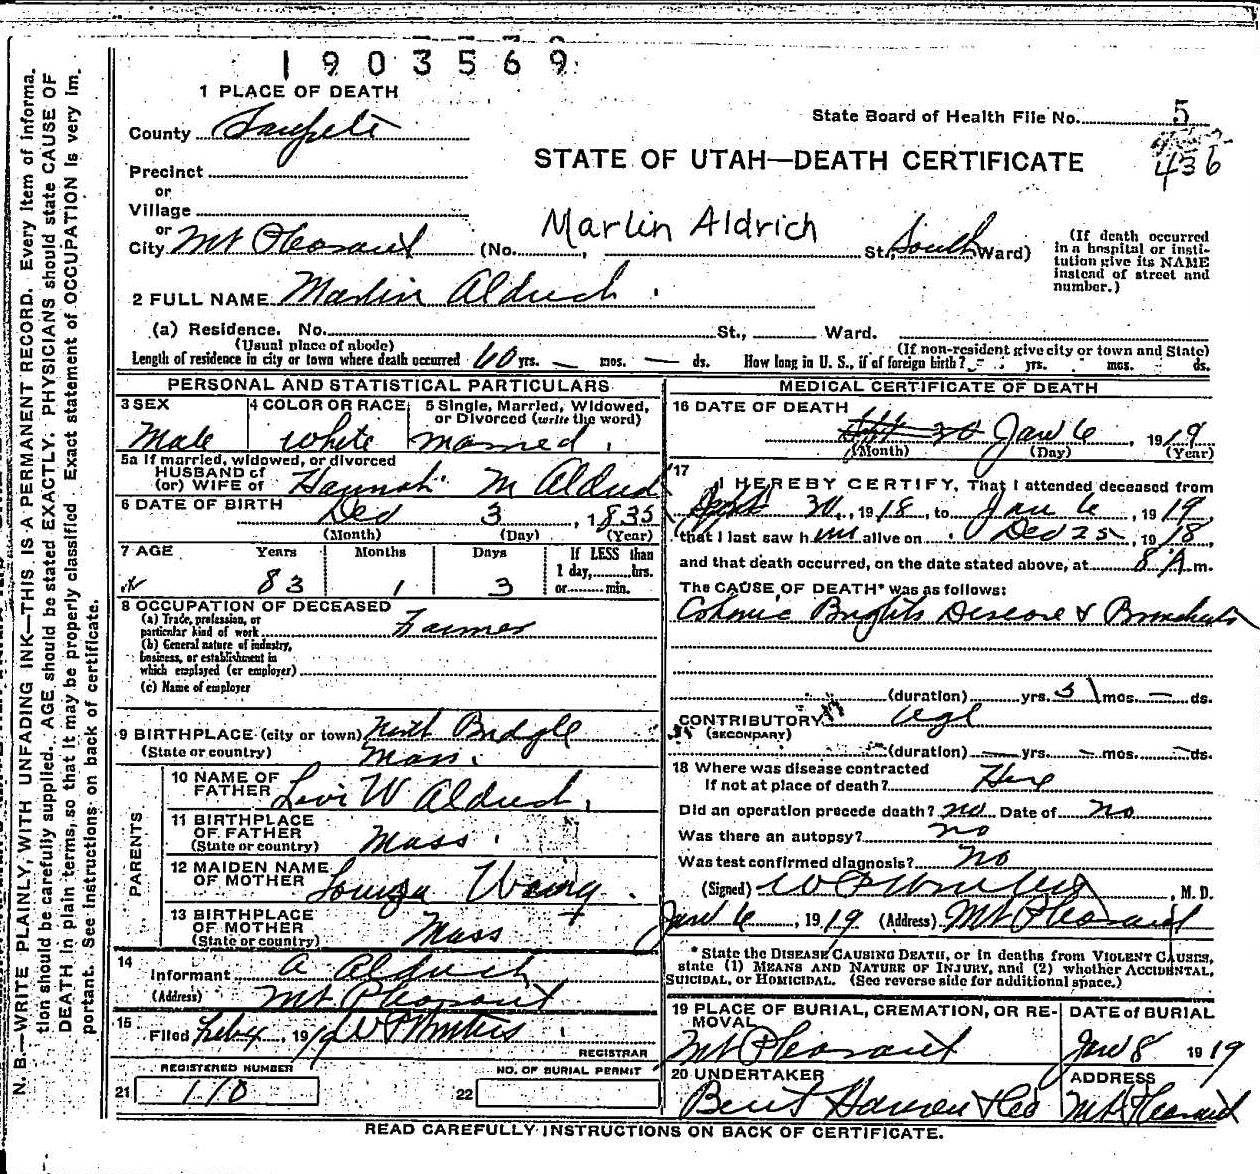 1903569
1 PLACE OF DEATH
State Board of Health File No. 5
County Sanpete
436
STATE OF UTAH—DEATH CERTIFICATE
Precinct
or
Village
or
Marlin Aldrich
City Mt Pleasant (No. , St., South Ward)
(If death occurred in a hospital or insti-
tution give its NAME
instead of street and
number.)
2 FULL NAME Marlin Aldrich
(a) Residence. No. St., Ward.
(Usual place of abode) (If non-resident give city or town and State)
Length of residence in city or town where death occurred 60 yrs. — mos. — ds. How long in U. S., if of foreign birth? yrs. mos. ds.
PERSONAL AND STATISTICAL PARTICULARS
3 SEX
Male
4 COLOR OR RACE
White
5 Single, Married, Widowed,
or Divorced (write the word)
married.
5a If married, widowed, or divorced
HUSBAND of
(or) WIFE of Hannah M Aldrich
6 DATE OF BIRTH Dec 3, 1835
(Month) (Day) (Year)
7 AGE Years Months Days If LESS than
1 day, hrs.
83 1 3 or min.
8 OCCUPATION OF DECEASED
(a) Trade, profession, or
particular kind of work Farmer
(b) General nature of industry,
business, or establishment in
which employed (or employer)
(c) Name of employer
9 BIRTHPLACE (city or town) North Bridge
(State or country) Mass.
PARENTS
10 NAME OF
FATHER Levi W Aldrich.
11 BIRTHPLACE
OF FATHER
(State or country) Mass.
12 MAIDEN NAME
OF MOTHER Louiza Wing.
13 BIRTHPLACE
OF MOTHER
(State or country) Mass
14
Informant A Aldrich
(Address) Mt Pleasant
15
Filed Feb 4, 1919
REGISTRAR
REGISTERED NUMBER
21 110
NO. OF BURIAL PERMIT
22
MEDICAL CERTIFICATE OF DEATH
16 DATE OF DEATH
Jan 6, 1919
(Month) (Day) (Year)
17
I HEREBY CERTIFY, That I attended deceased from
Sept 30, 1918, to Jan 6, 1919
that I last saw him alive on Dec 25, 1918,
and that death occurred, on the date stated above, at 8 A m.
The CAUSE OF DEATH* was as follows:
Chronic Brights Disease & Bronchitis
(duration) yrs. 3 mos. — ds.
CONTRIBUTORY Age
(SECONDARY)
(duration) — yrs. — mos. — ds.
18 Where was disease contracted
If not at place of death? Here
Did an operation precede death? no Date of no
Was there an autopsy? no
Was test confirmed diagnosis? no
(Signed) , M. D.
Jan 6, 1919 (Address) Mt Pleasant
*State the DISEASE CAUSING DEATH, or in deaths from VIOLENT CAUSES,
state (1) MEANS AND NATURE OF INJURY, and (2) whether ACCIDENTAL,
SUICIDAL, or HOMICIDAL. (See reverse side for additional space.)
19 PLACE OF BURIAL, CREMATION, OR RE-
MOVAL
Mt Pleasant
DATE of BURIAL
Jan 8 1919
20 UNDERTAKER
Bent Hansen & Co
ADDRESS
Mt Pleasant
READ CAREFULLY INSTRUCTIONS ON BACK OF CERTIFICATE.
N. B.—WRITE PLAINLY, WITH UNFADING INK—THIS IS A PERMANENT RECORD. Every item of informa-
tion should be carefully supplied. AGE should be stated EXACTLY. PHYSICIANS should state CAUSE OF
DEATH in plain terms, so that it may be properly classified. Exact statement of OCCUPATION is very im-
portant. See instructions on back of certificate.